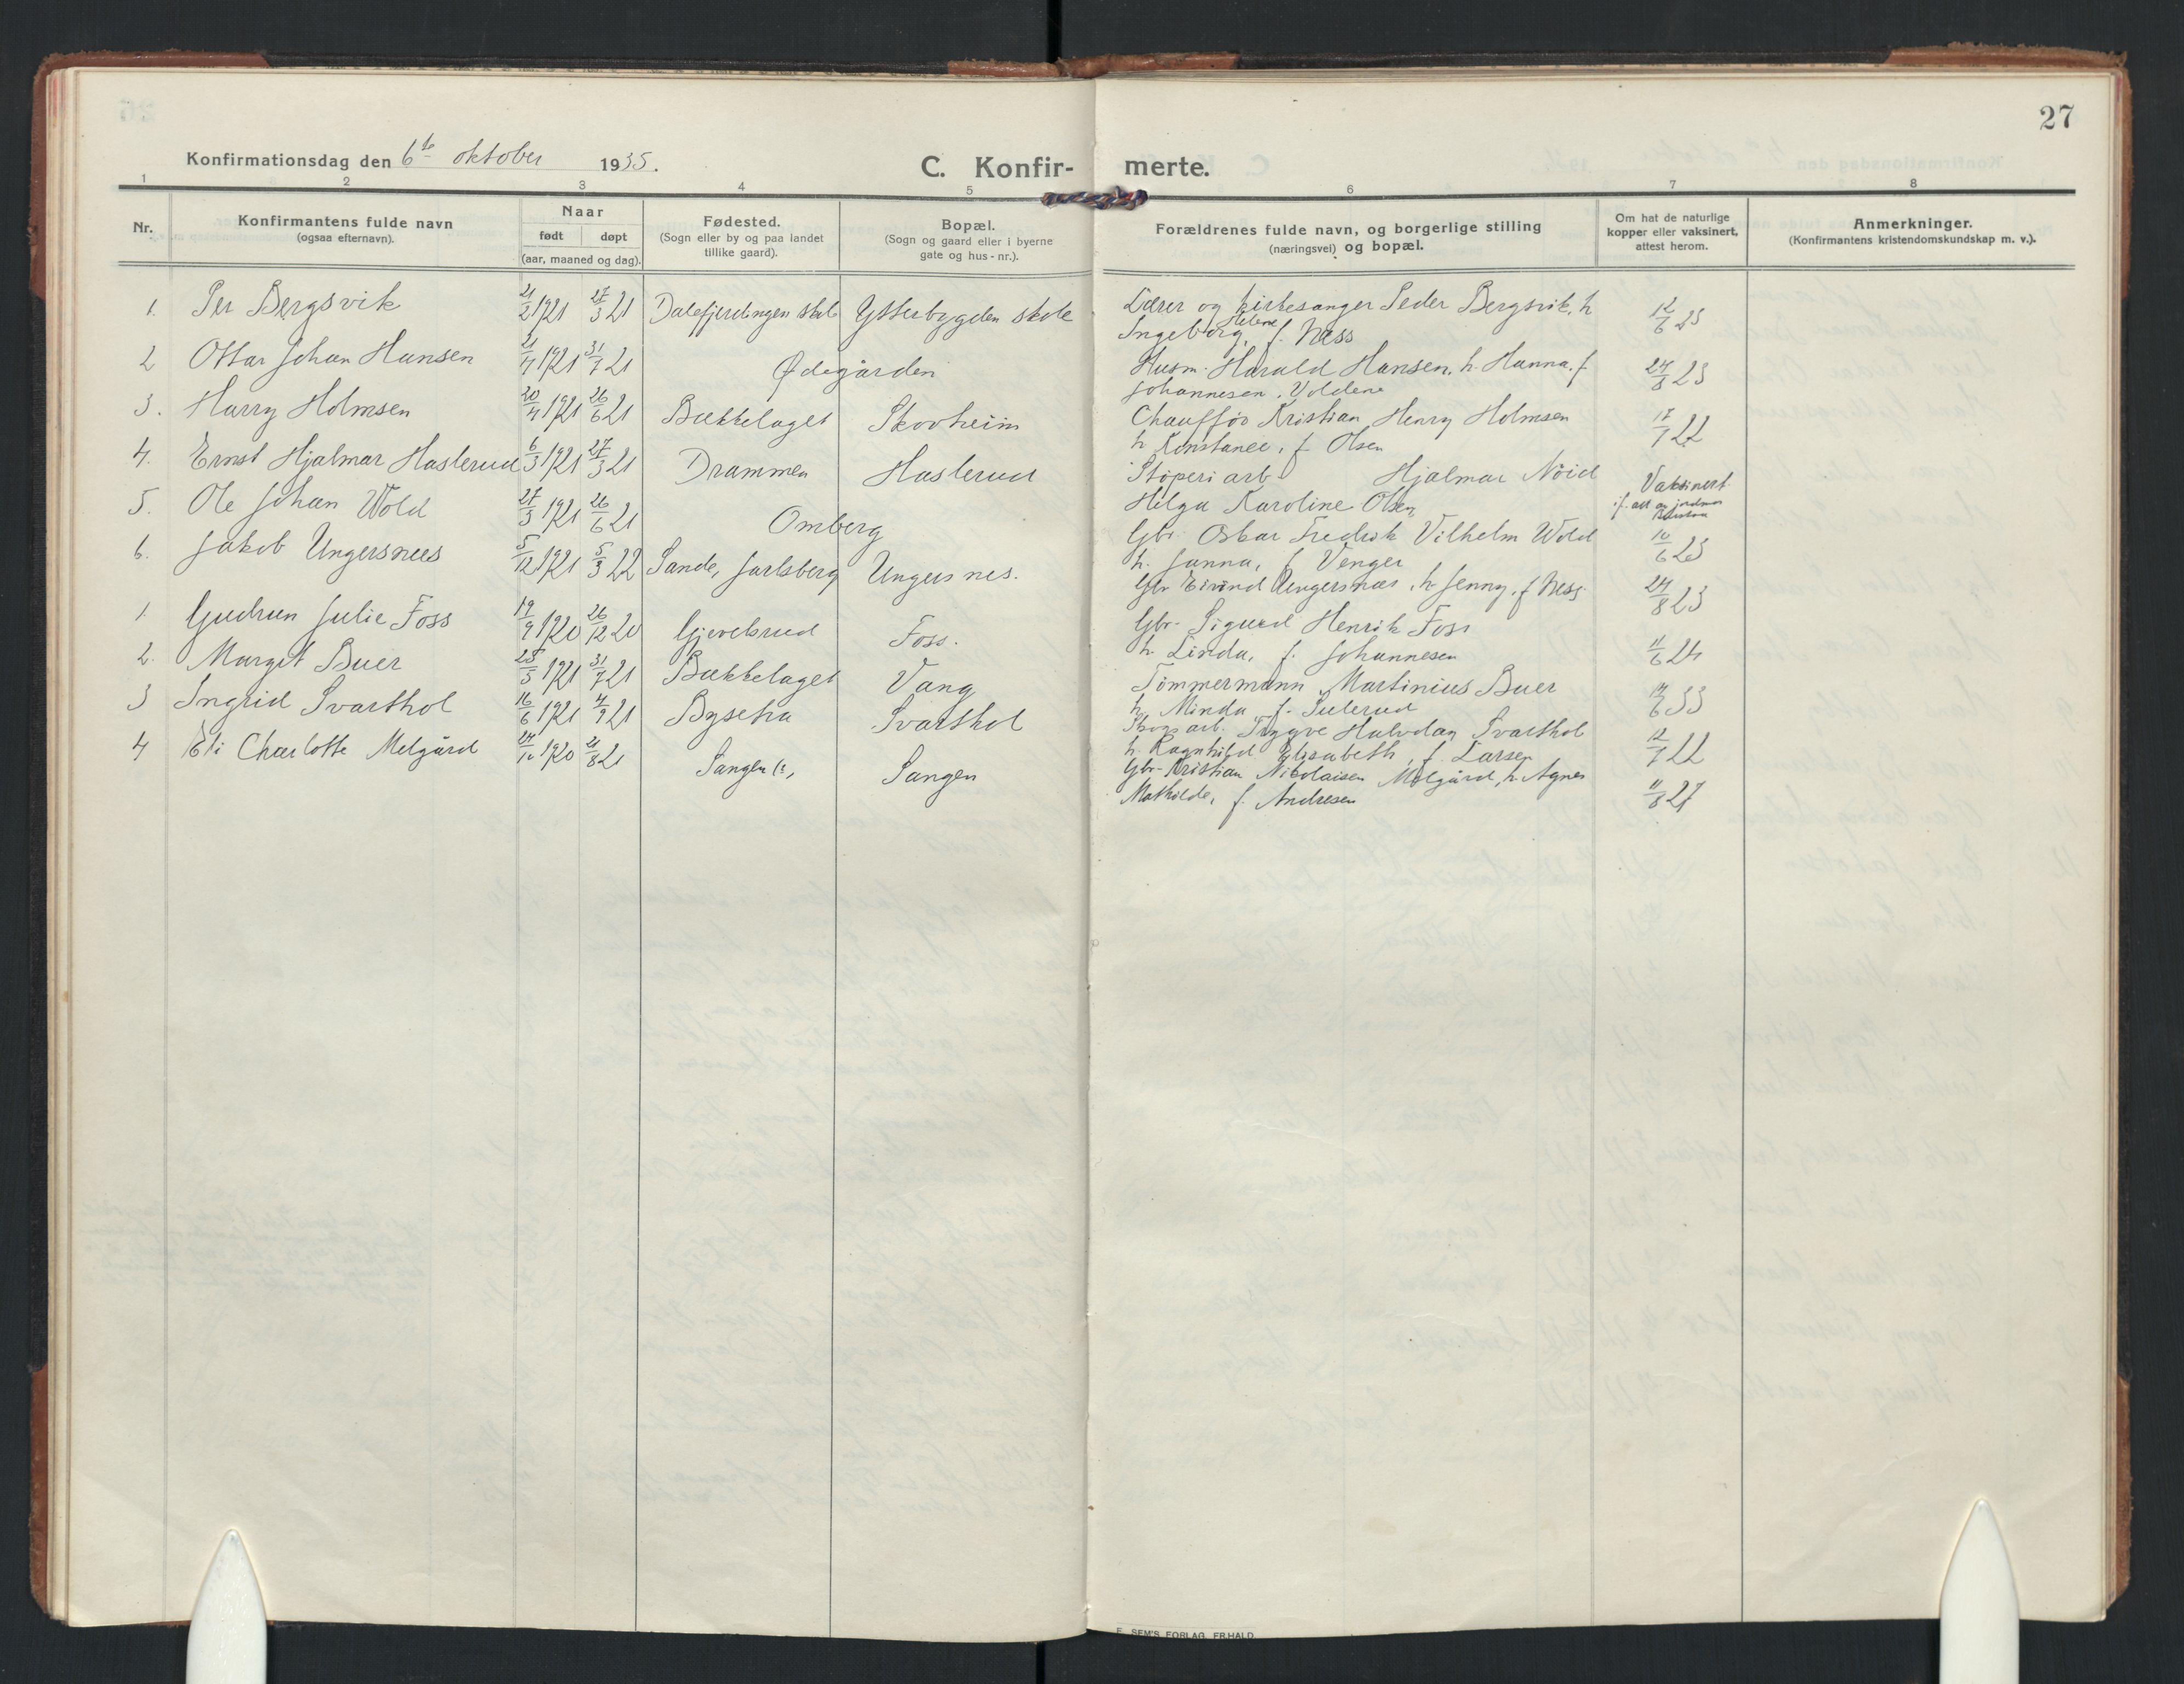 27
Konfirmationsdag den 6te oktober 1935.
C. Konfir- merte.
1 2 3 4 5 6 7 8
Nr.
Konfirmantens fulde navn
(ogsaa efternavn).
Naar
født døpt
(aar, maaned og dag).
Fødested.
(Sogn eller by og paa landet
tillike gaard).
Bopæl.
(Sogn og gaard eller i byerne
gate og hus-nr.).
Forældrenes fulde navn, og borgerlige stilling
(næringsvei) og bopæl.
Om hat de naturlige
kopper eller vaksinert,
attest herom.
Anmerkninger.
(Konfirmantens kristendomskundskap m. v.).
1. Per Bergsvik 21/2 1921 27/3 21 Dalefjerdingen skole Ytterbygden skole Lærer og kirkesanger Peder Bergsvik, h
Ingeborg Helene, f. Næss 12/6 25
2 Ottar Johan Hansen 21/4 1921 31/7 21 Ødegården Husm. Harald Hansen, h. Hanna, f
Johannesen, Voldene 24/8 23
3. Harry Holmsen 20/4 1921 26/6 21 Bækkelaget Skovheim Chauffør Kristian Henry Holmsen
h Konstanse, f Olsen 17/7 22
4. Ernst Hjalmar Haslerud 6/3 1921 27/3 21 Drammen Haslerud Støperiarb Hjalmar Nøid
Helga Karoline Olsen Vaksinert
5. Ole Johan Wold 27/3 1921 26/6 21 Omberg Gbr. Oskar Fredrik Vilhelm Wold
h. Janna, f Venger 10/6 25
6. Jakob Ungersnees 5/12 1921 5/3 22 Sande, Jarlsberg Ungersnes. Gbr Eivind Ungersnæs, h Jenny, f Næss 24/8 23
1. Gudrun Julie Foss 19/9 1920 26/12 20 Gjevelsrud Foss. Gbr. Sigurd Henrik Foss
h. Linda, f. Johannesen 11/6 24
2. Margit Buer 25/5 1921 31/7 21 Bækkelaget Vang Tømmermann Martinius Buer
h. Minda f. Sulerud 14/6 33
3 Ingrid Svarthol 16/6 1921 4/9 21 Bysetra Svarthol Skogsarb. Trygve Halvdan Svarthol
h. Ragnhild Elisabeth, f. Larsen 12/7 22
4 Eli Charlotte Melgård 24/10 1920 21/8 21 Sangen Sangen Gbr. Kristian Nikolaisen Melgård, h Agnes
Mathilde, f. Andresen 11/8 27
E. SEM'S FORLAG, FR.HALD